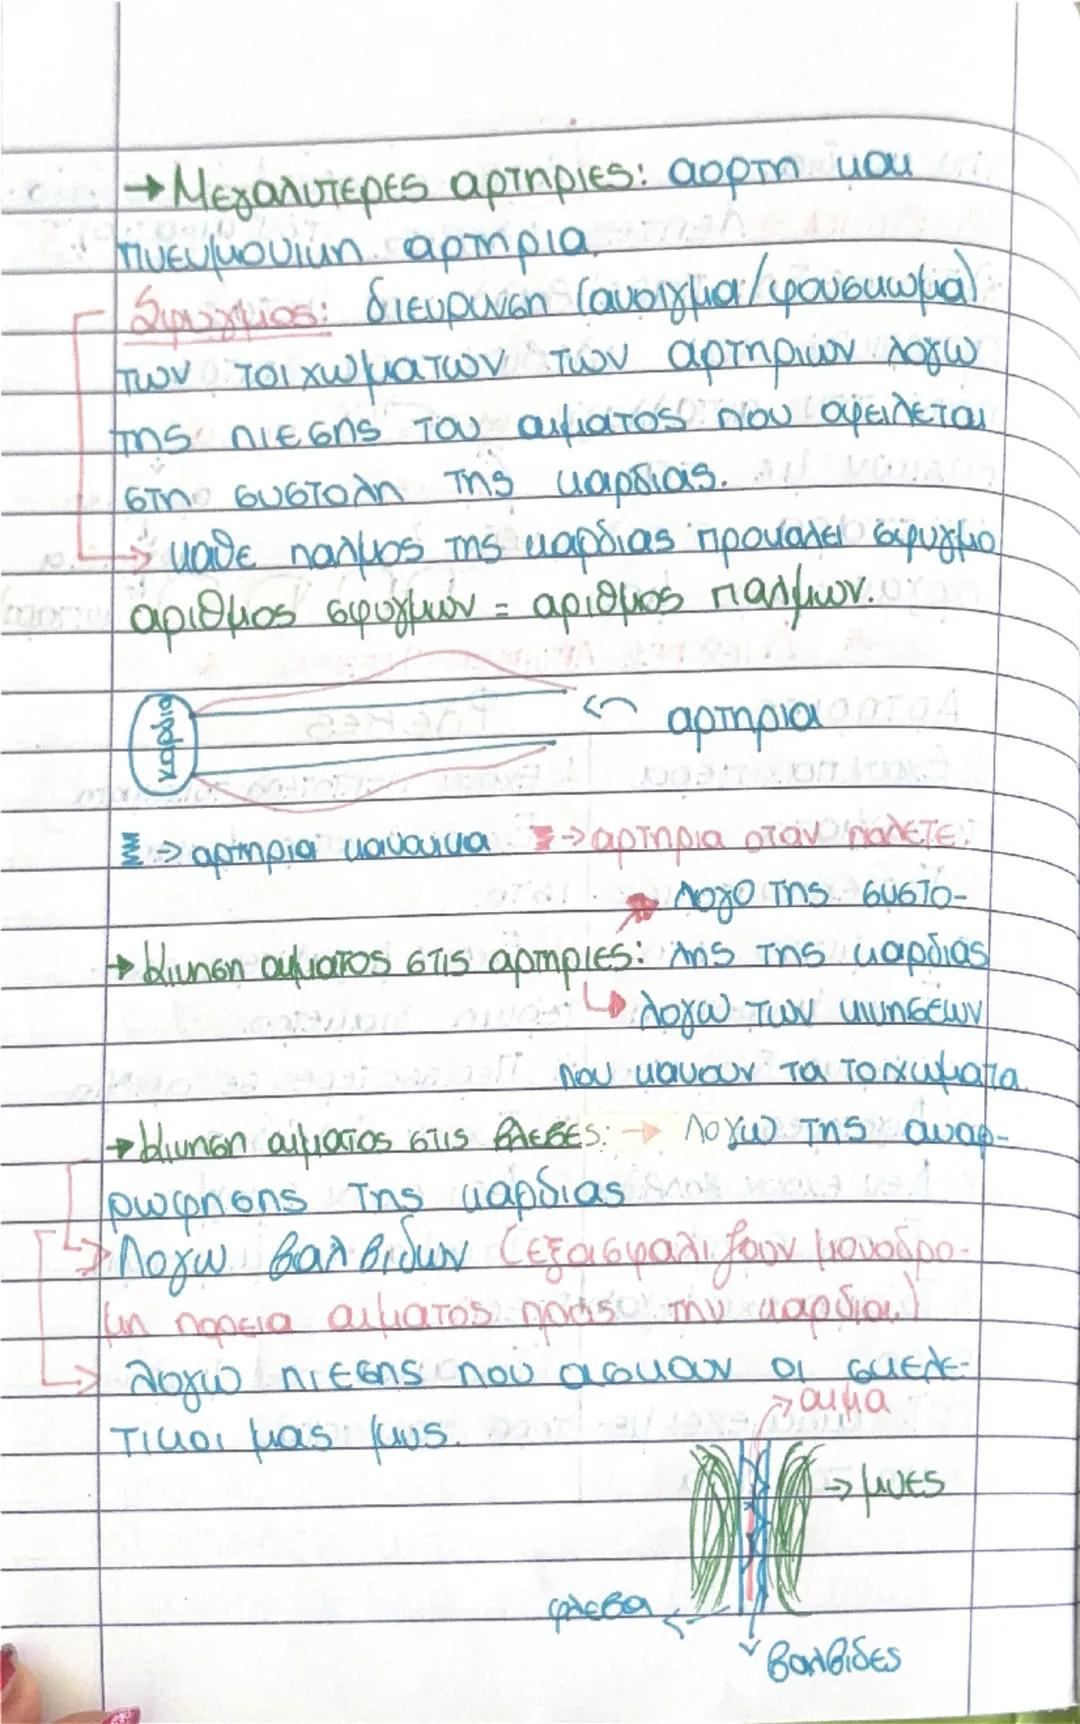 → Μεγαλυτερες αρτηριες: αορτη και
πνευμονικη αρτηρια.
Σφυγμος: διευρυνση (ανοιγμα/φουσκωμα)
των τοιχωματων των αρτηριων λογω
της πιεσης του αιματος που οφειλεται
στη συστολη της καρδιας.
→ καθε παλμος της καρδιας προκαλει σφυγμο
αριθμος σφυγμων = αριθμος παλμων.
καρδια
αρτηρια
→ αρτηρια κανονικα → αρτηρια οταν παλετε.
λογο της συστο-
→ Κινηση αιματος στις αρτηριες: λης της καρδιας
λογω των κινησεων
που κανουν τα τοιχωματα
→ Κινηση αιματος στις φλεβες: → λογω της αναρ-
ρωφησης της καρδιας
→ Λογω βαλβιδων (εξασφαλιζουν μονοδρο-
μη πορεια αιματος προς την καρδια)
→ λογω πιεσης που ασκουν οι σκελε-
τικοι μας μυς.
→ αιμα
→ μυες
φλεβα
βαλβιδες